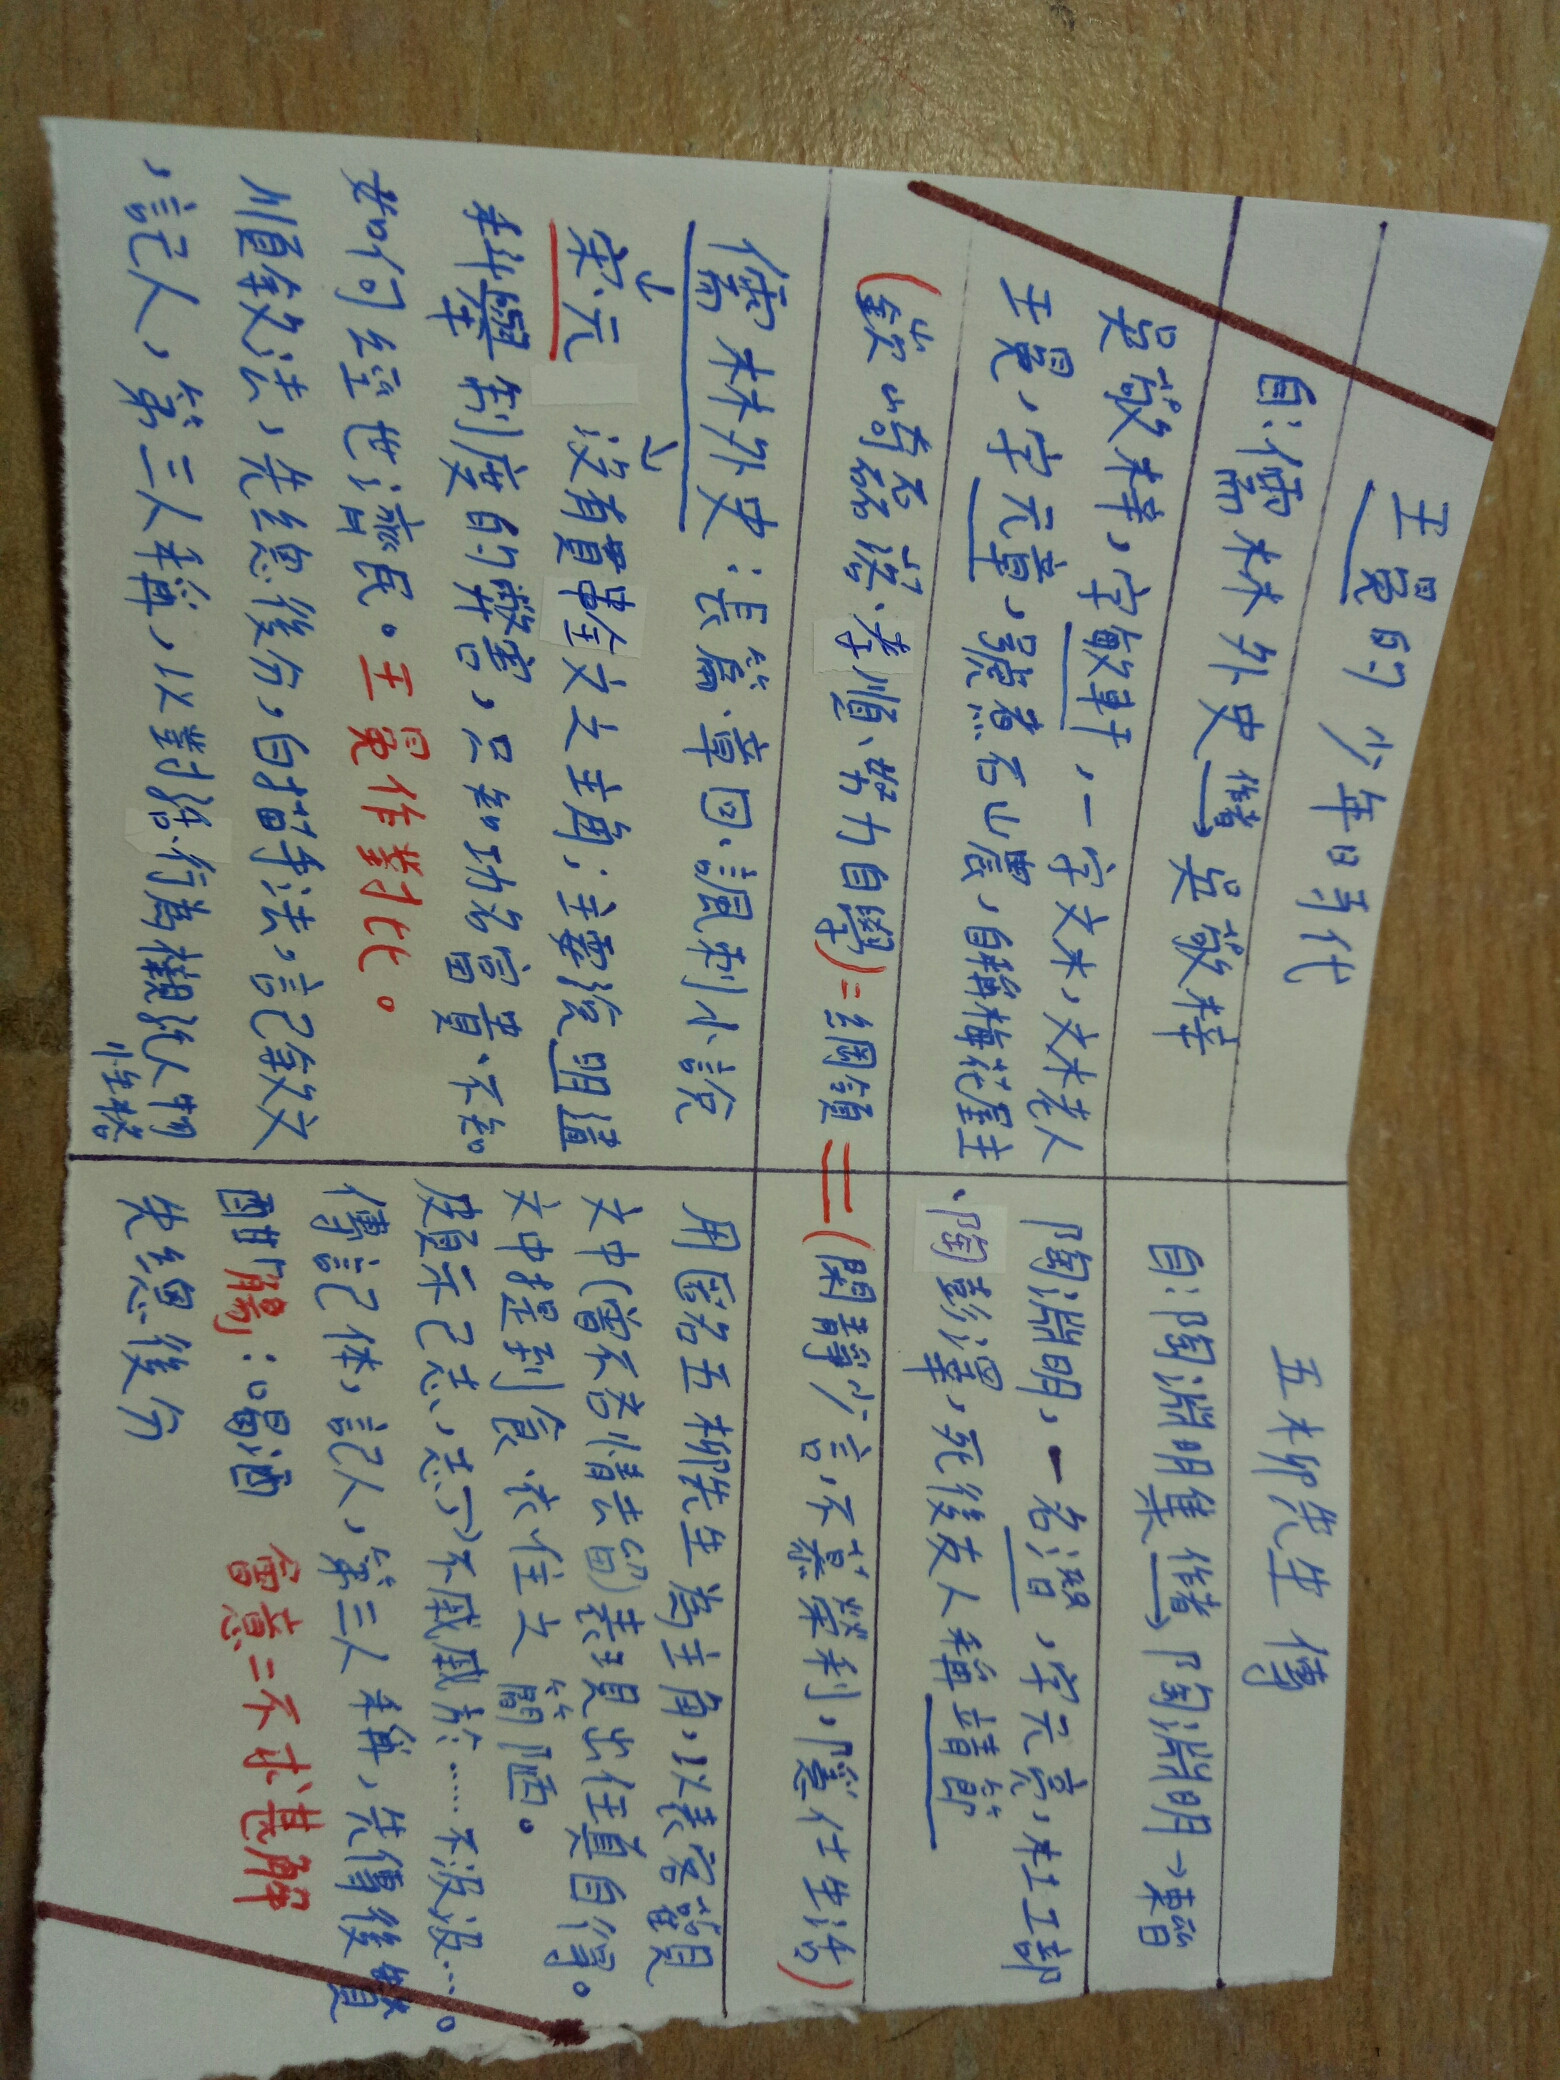 王冕的少年時代
自:儒林外史 作者→ 吳敬梓
吳敬梓,字敏軒,一字文木,文木老人
王冕,字元章,號煮石山農,自稱梅花屋主
(嶔崎磊落、孝順、努力自學)=綱領=
儒林外史:長篇、章回、諷刺小說
↓ ↓
宋元 沒有貫串全文之主角;主要說明道
科舉制度的弊害,只知功名富貴、不知
如何經世濟民。王冕作對比。
順敘法,先總後分,白描手法,記敘文
,記人,第三人稱,以對話、行為襯託人物
性格
五柳先生傳
自:陶淵明集 作者→ 陶淵明→東晉
陶淵明,一名潛,字元亮,杜工部
、陶彭澤,死後友人稱靖節
(閑靜少言,不慕榮利,隱仕生活)
用匿名五柳先生為主角,以表容貌
文中(曾不吝情去留)表現出任真自得。
文中提到食、衣、住之簡陋。
頗示己志,忘了)不戚戚於……不汲汲……。
傳記體,記人,第三人稱,先傳後贊
酣觴:喝酒 會意=不求甚解
先總後分